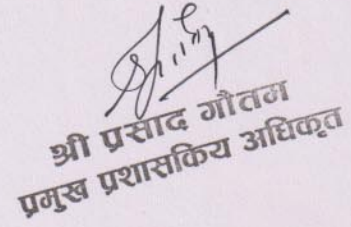 श्री प्रसाद गौतम
प्रमुख प्रशासकिय अधिकृत